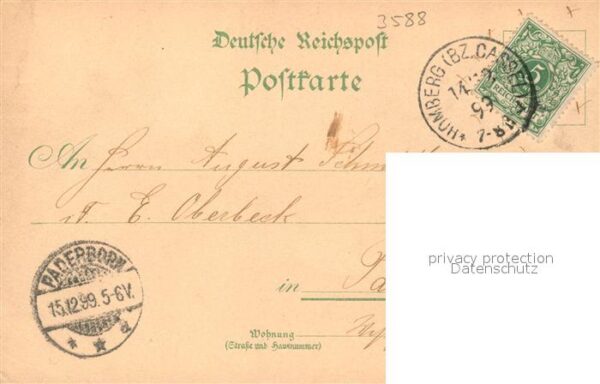 3588
Deutsche Reichspost
Postkarte
HOMBERG (BZ. CASSEL)
14.12.
99
7-8
5
An Herrn August
d. E. Oberbeck
in Pa
PADERBORN
15.12.99.5-6V.
Wohnung
(Straße und Hausnummer)
privacy protection
Datenschutz